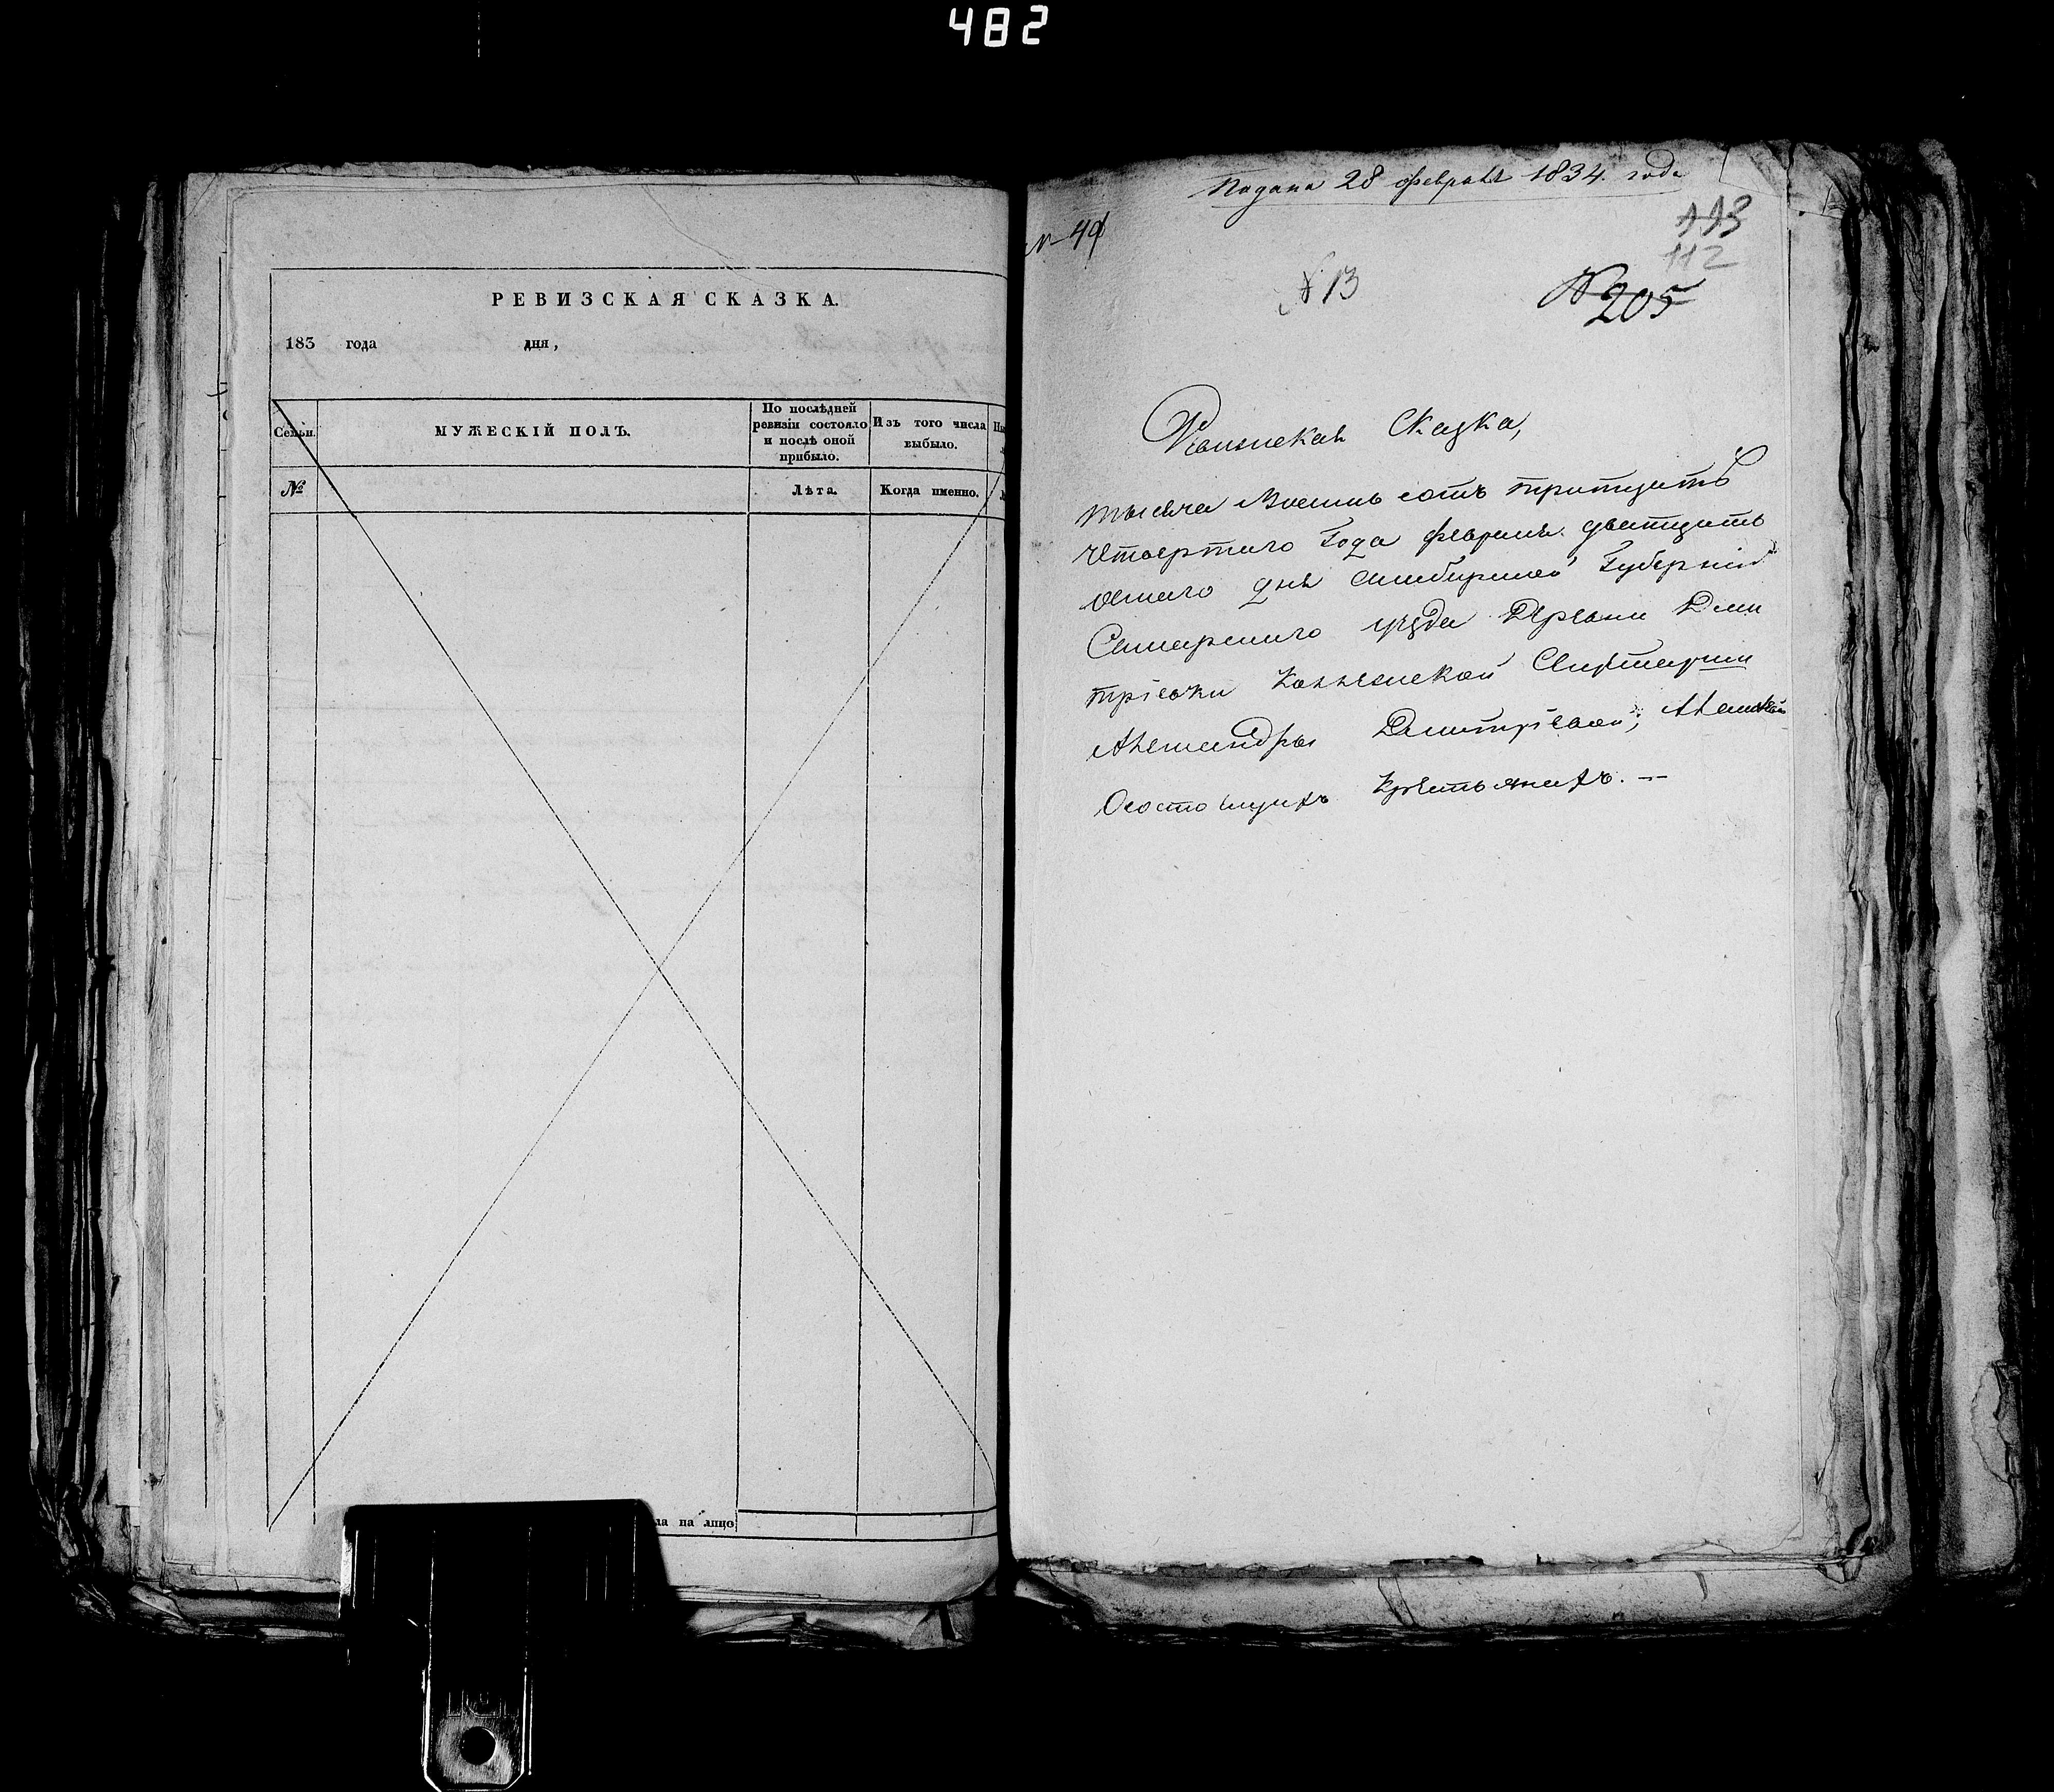 482
РЕВИЗСКАЯ СКАЗКА.
183 года дня,
Семьи.
МУЖЕСКІЙ ПОЛЪ.
По послѣдней ревизіи состояло и послѣ оной прибыло.
Изъ того числа выбыло.
№
Лѣта.
Когда именно.
на лицо
Подана 28 февраля 1834 года
№ 13
113
112
№ 205
Ревизская Сказка,
тысяча восемь сотъ тритцать
четвертаго Года февраля дватцать
осмаго дня Симбирской Губерніи
Самарскаго уѣзда Деревни Дми
тріевки
Александры Дмитріевой,
Состоящихъ Крестьянахъ. —